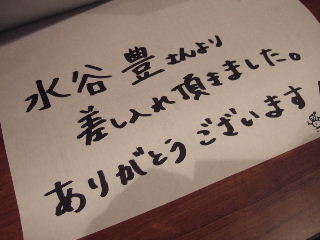 水谷 豊さんより
差し入れ頂きました。
ありがとうございます!